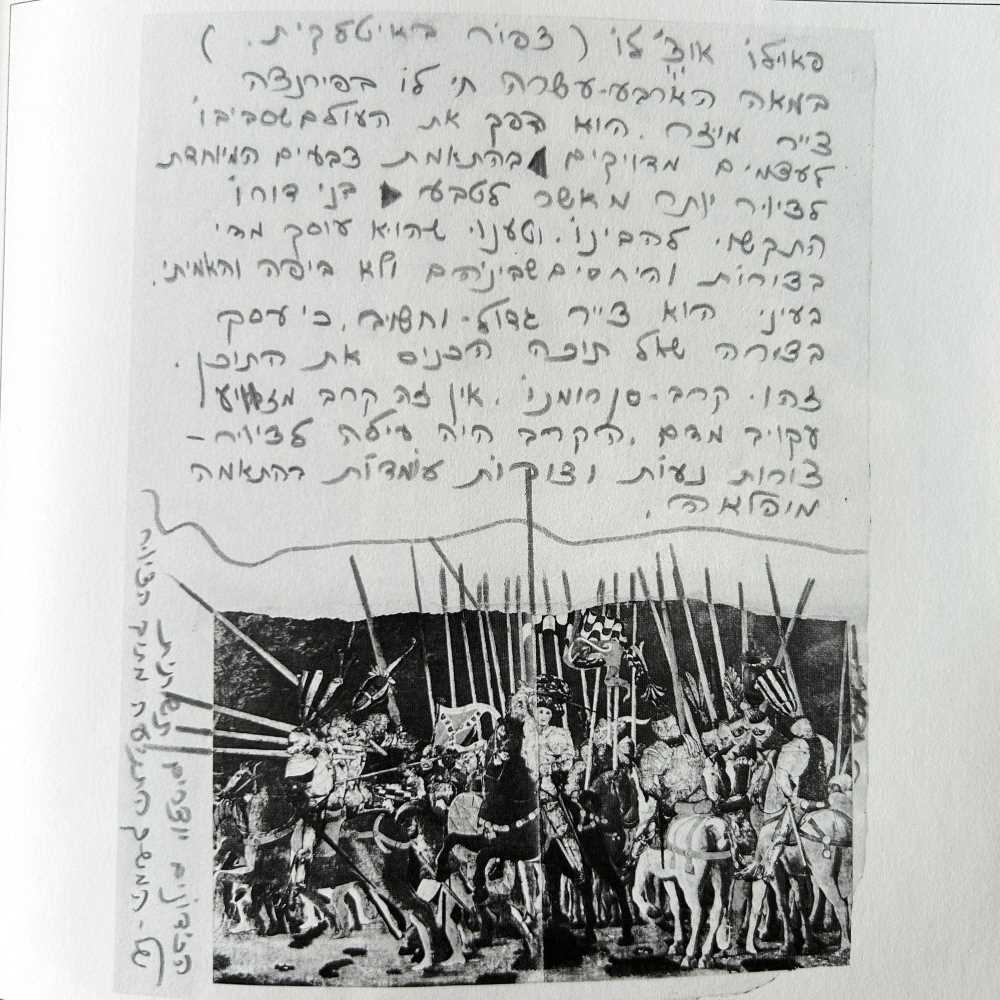 פאולו אוצ'לו (צפור באיטלקית.)
במאה הארבע-עשרה חי לו בפירנצה
צייר מוצר. הוא הפך את העולם שסביבו
לעצמים מדויקים בהתאמת צבעים המיוחדת
לציור יותר מאשר לטבע בני דורו
התקשו להבינו. וטענו שהוא עוסק מדי
בצורות והיחסים שביניהם ולא ביפה והאמיתי.
בעיני הוא צייר גדול - וחשוב, כי עסק
בצורה שאל תוכה הכניס את התוכן.
זהו. קרב-סן רומנו. אין זה קרב מזויע
עקוב מדם, הקרב היה עילה לציור -
צורות נעות וצורות עומדות בהתאמה
מופלאה.
הכידונים יוצרים
של - המשק מתוך הציור